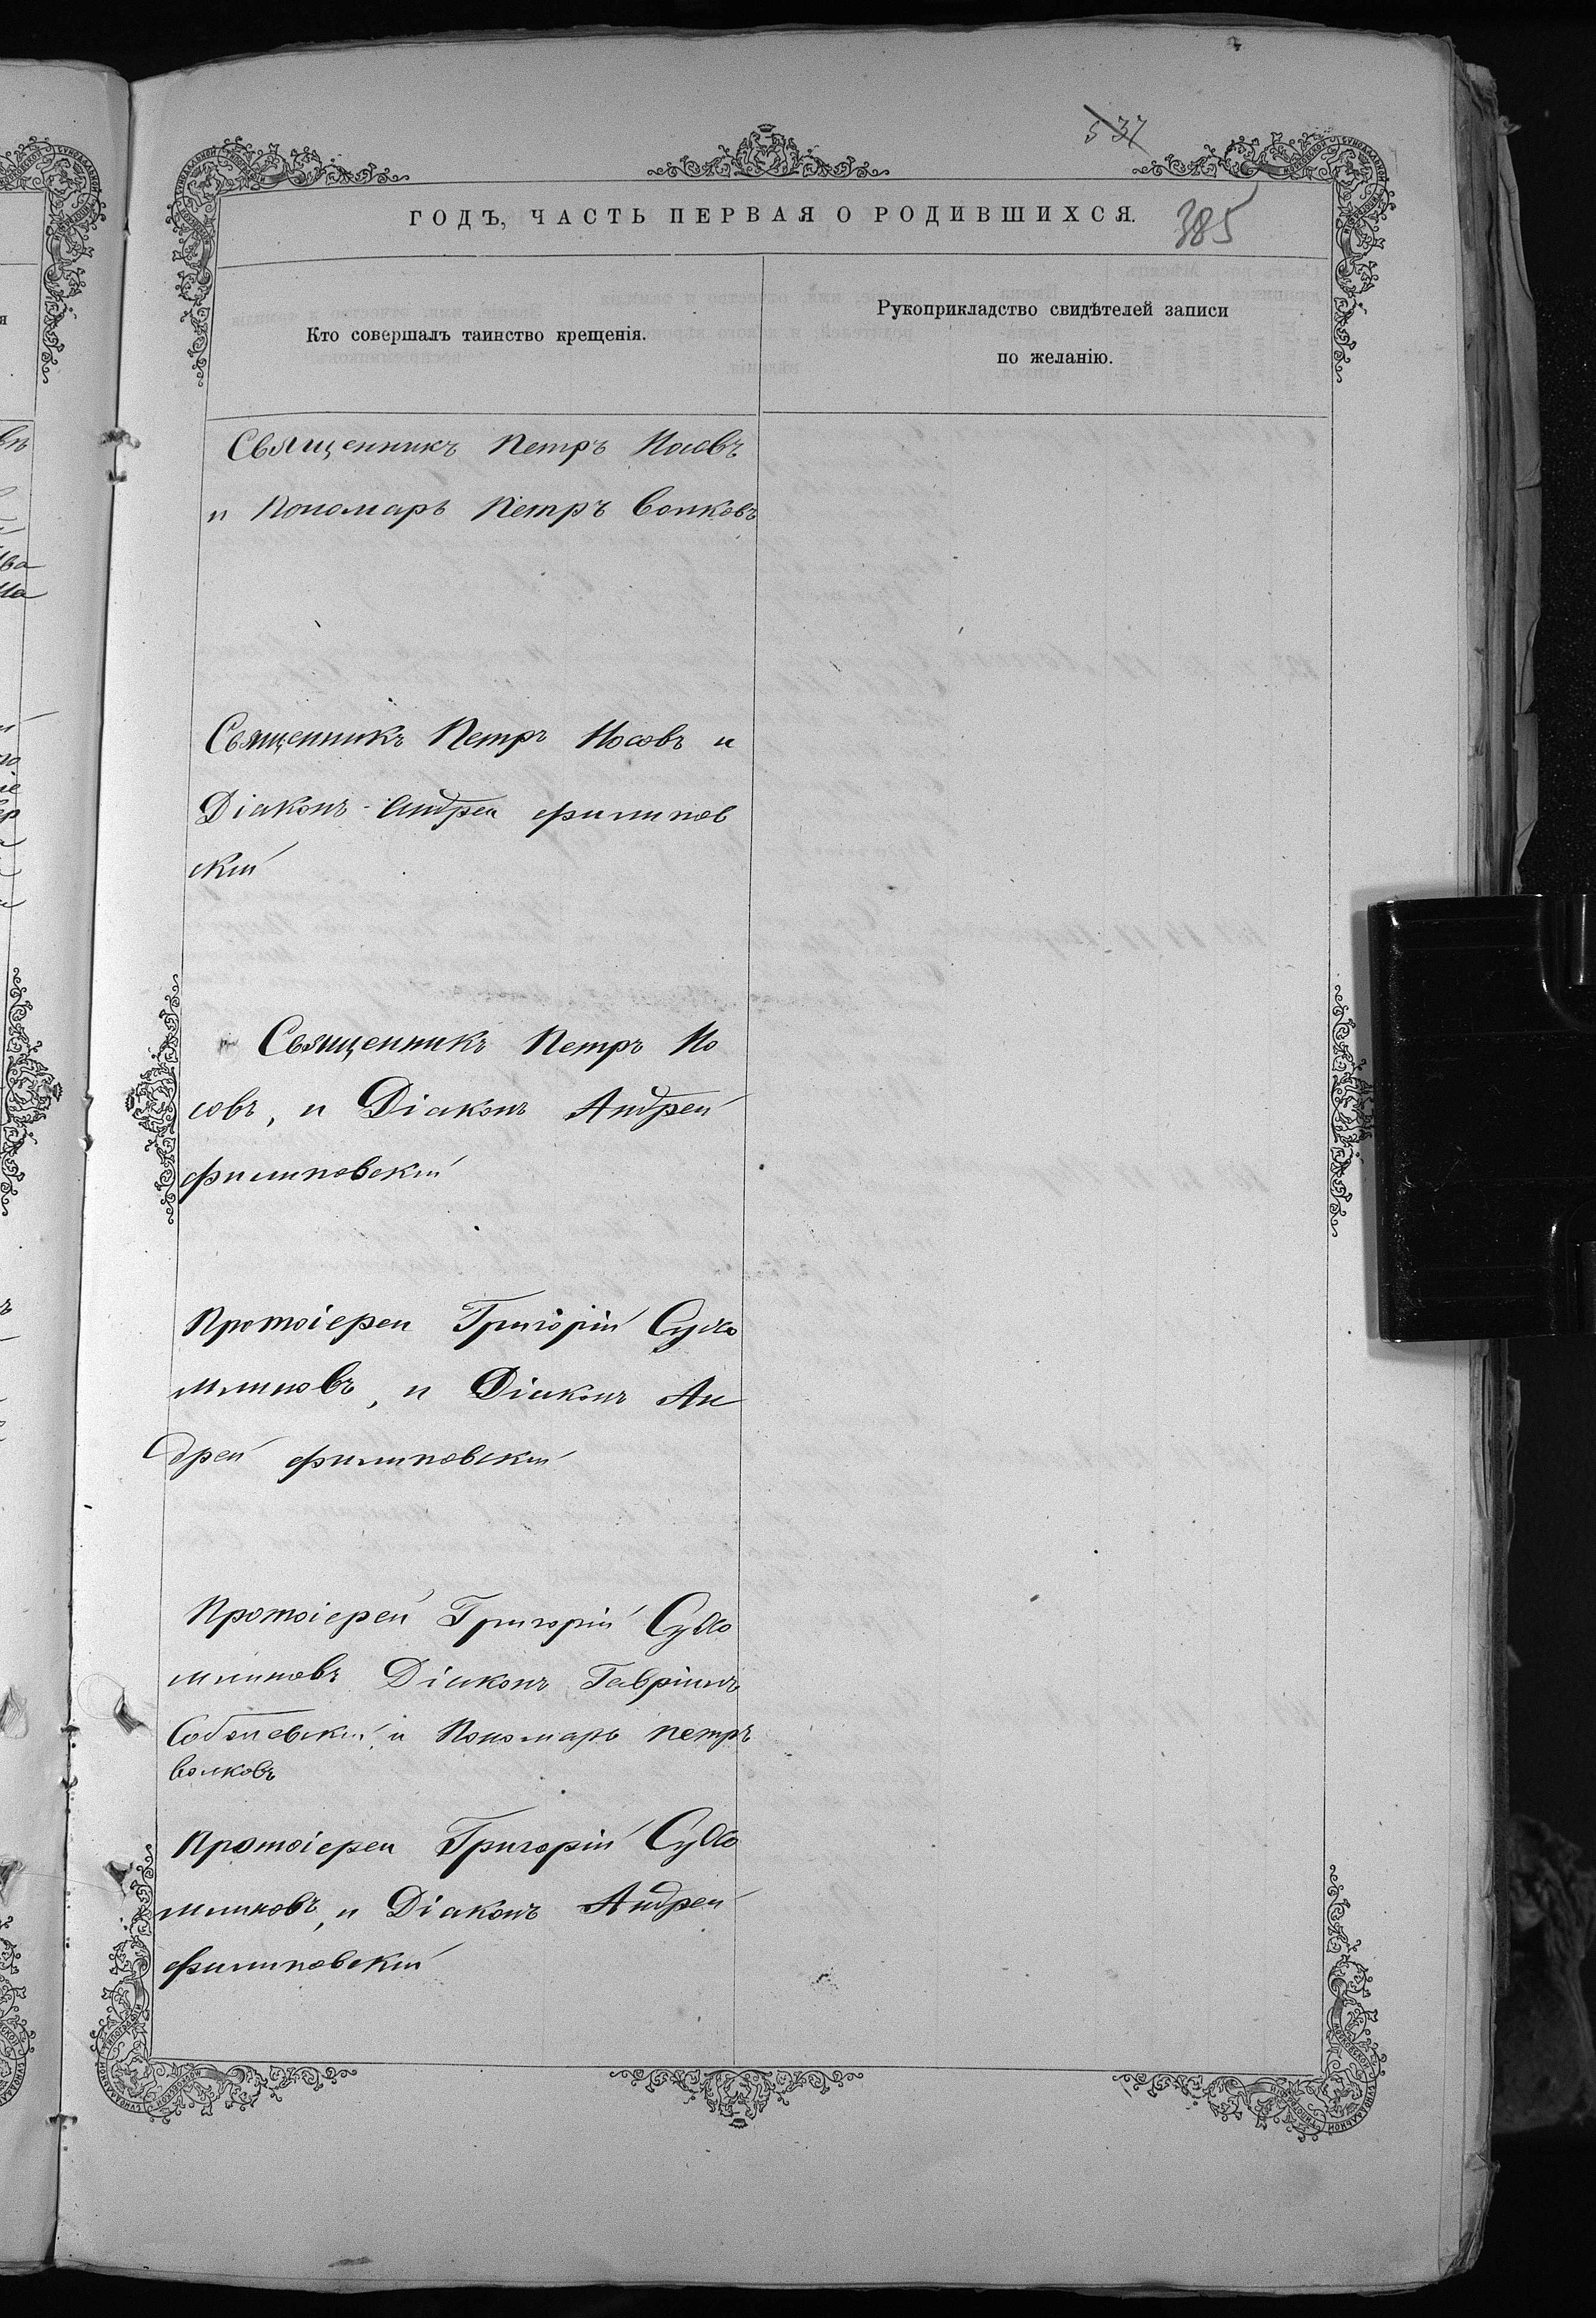 537
ГОДЪ, ЧАСТЬ ПЕРВАЯ О РОДИВШИХСЯ.
385
Кто совершалъ таинство крещенія.
Рукоприкладство свидѣтелей записи
по желанію.
Священникъ Петръ Носовъ
и Пономарь Петръ Волковъ
Священникъ Петръ Носовъ и
Діаконъ Андреи филипов
скій
Священникъ Петръ Но
совъ, и Діаконъ Андрей
филиповскій
Протоіереи Григорій Сухо
млиновъ, и Діаконъ Ан
дрей филиповскій
Протоіерей Григорій Сухо
млиновъ Діаконъ Гавріилъ
Соболевскій, и Пономарь Петръ
Волковъ
Протоіереи Григорій Сухо
млиновъ, и Діаконъ Андрей
филиповскій